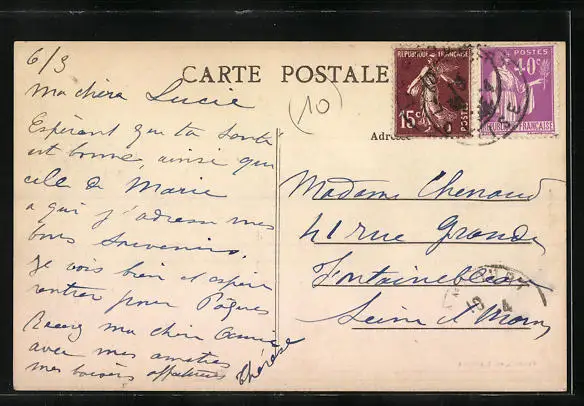 6/3
CARTE POSTALE
(10)
RÉPUBLIQUE FRANÇAISE
15c
POSTES
POSTES
40c
RÉPUBLIQUE FRANÇAISE
Ma chère Lucie
Espérant que ta santé
est bonne, ainsi que
celle de Marie
a qui j'adresse mes
bons souvenirs.
Je vais bien et espère
rentrer pour Pâques
Reçois ma chère
avec mes amitiés
mes baisers affectueux
Thérèse
Adresse
Madame Chenaud
41 rue Grande
Fontainebleau
Seine et Marne